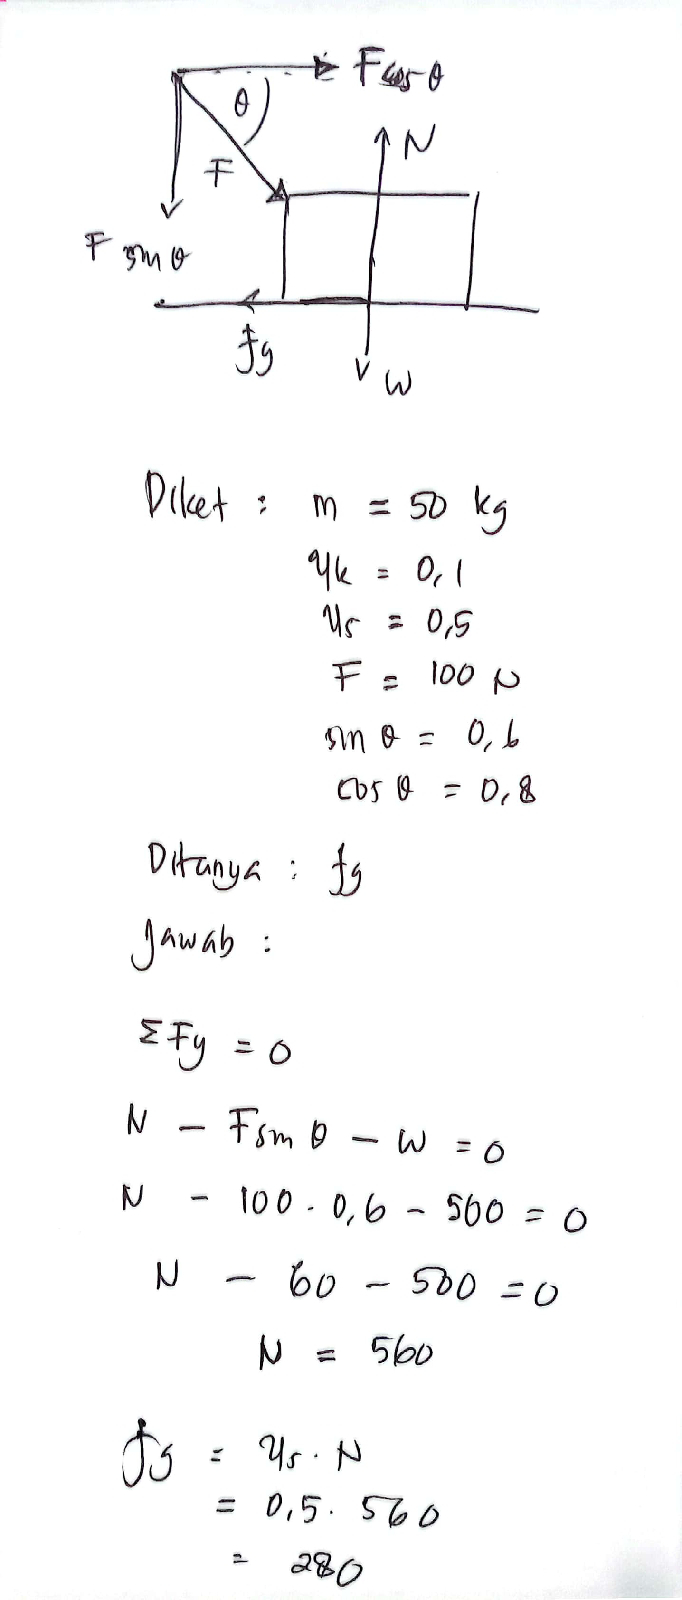 F cos θ
θ
N
F
F sin θ
fg
W
Diket : m = 50 kg
μk = 0,1
μs = 0,5
F = 100 N
sin θ = 0,6
cos θ = 0,8
Ditanya : fg
Jawab :
Σ Fy = 0
N - F sin θ - W = 0
N - 100 . 0,6 - 500 = 0
N - 60 - 500 = 0
N = 560
fs = μs . N
= 0,5 . 560
= 280